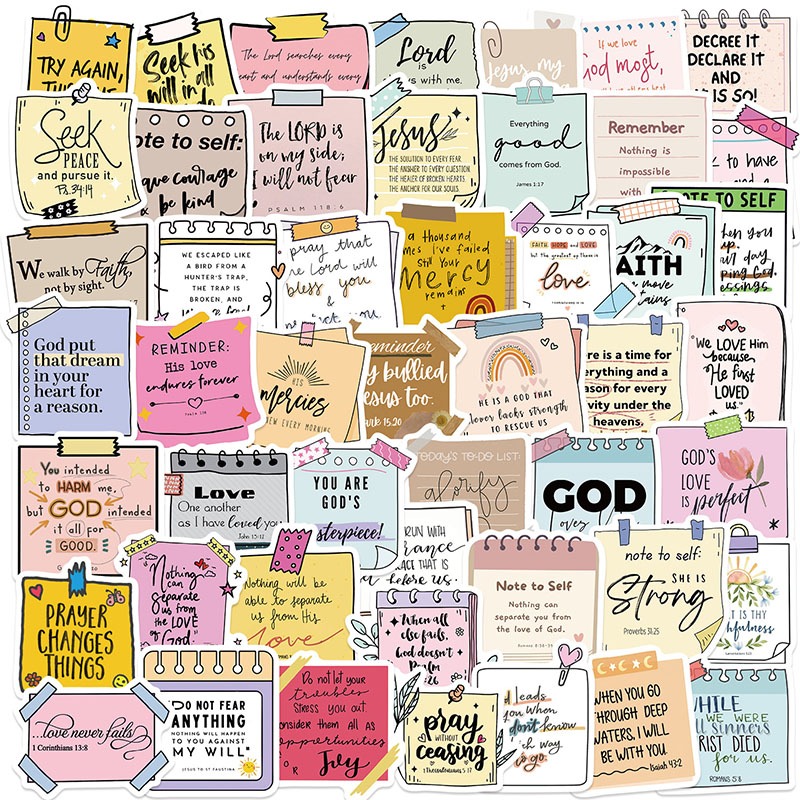 TRY AGAIN,
Seek his
will in all
The Lord searches every
heart and understands every
Lord
is
with me.
Jesus, my
If we love
God most,
DECREE IT
DECLARE IT
AND
IT IS SO!
Seek
PEACE
and pursue it.
Ps. 34:14
note to self:
have courage
& be kind
The LORD is
on my side;
I will not fear
PSALM 118:6
Jesus
THE SOLUTION TO EVERY FEAR.
THE ANSWER TO EVERY QUESTION
THE HEALER OF BROKEN HEARTS.
THE ANCHOR FOR OUR SOULS.
Everything
good
comes from God.
James 1:17
Remember
Nothing is
impossible
with
to have
NOTE TO SELF
when you
up.
day
God.
We walk by Faith,
not by sight.
WE ESCAPED LIKE
A BIRD FROM A
HUNTER'S TRAP,
THE TRAP IS
BROKEN, AND
pray that
the Lord will
bless you
&
a thousand
times I've failed
Still Your
Mercy
remains
FAITH, HOPE and LOVE
but the greatest of these is
love
FAITH
move
God put
that dream
in your
heart for
a reason.
REMINDER:
His love
endures forever
HIS
Mercies
NEW EVERY MORNING
Reminder
bullied
Jesus too.
Mark 15:20
HE IS A GOD THAT
never lacks strength
TO RESCUE US
there is a time for
everything and a
season for every
activity under the
heavens.
"We LOVE HIM
because
He first
LOVED
us."
You intended
to HARM me,
but GOD intended
it all for
GOOD.
Love
One another
as I have loved you
John 15:12
YOU ARE
GOD'S
masterpiece!
TODAY'S TO-DO LIST:
glorify
GOD
over
GOD'S
LOVE
IS
perfect
RUN WITH
THAT IS
before us.
Note to Self
Nothing can
separate you from
the love of God.
note to self:
SHE IS
Strong
Proverbs 31:25
PRAYER
CHANGES
THINGS
Nothing
can
Separate
Us from
the LOVE
of God.
Nothing will be
able to separate
us from His
love
When all
else fails,
God doesn't
Psalm
...love never fails
1 Corinthians 13:8
"DO NOT FEAR
ANYTHING
NOTHING WILL HAPPEN
TO YOU AGAINST
MY WILL"
JESUS TO ST FAUSTINA
Do not let your
troubles
Stress you out
Consider them all as
opportunities
FOR
Joy
pray
WITHOUT
ceasing
1 Thessalonians 5:17
God Leads
you When
you don't know
which way
to go.
WHEN YOU GO
THROUGH DEEP
WATERS, I WILL
BE WITH YOU
Isaiah 43:2
WHILE
WE WERE
still sinners
CHRIST DIED
for us.
ROMANS 5:8